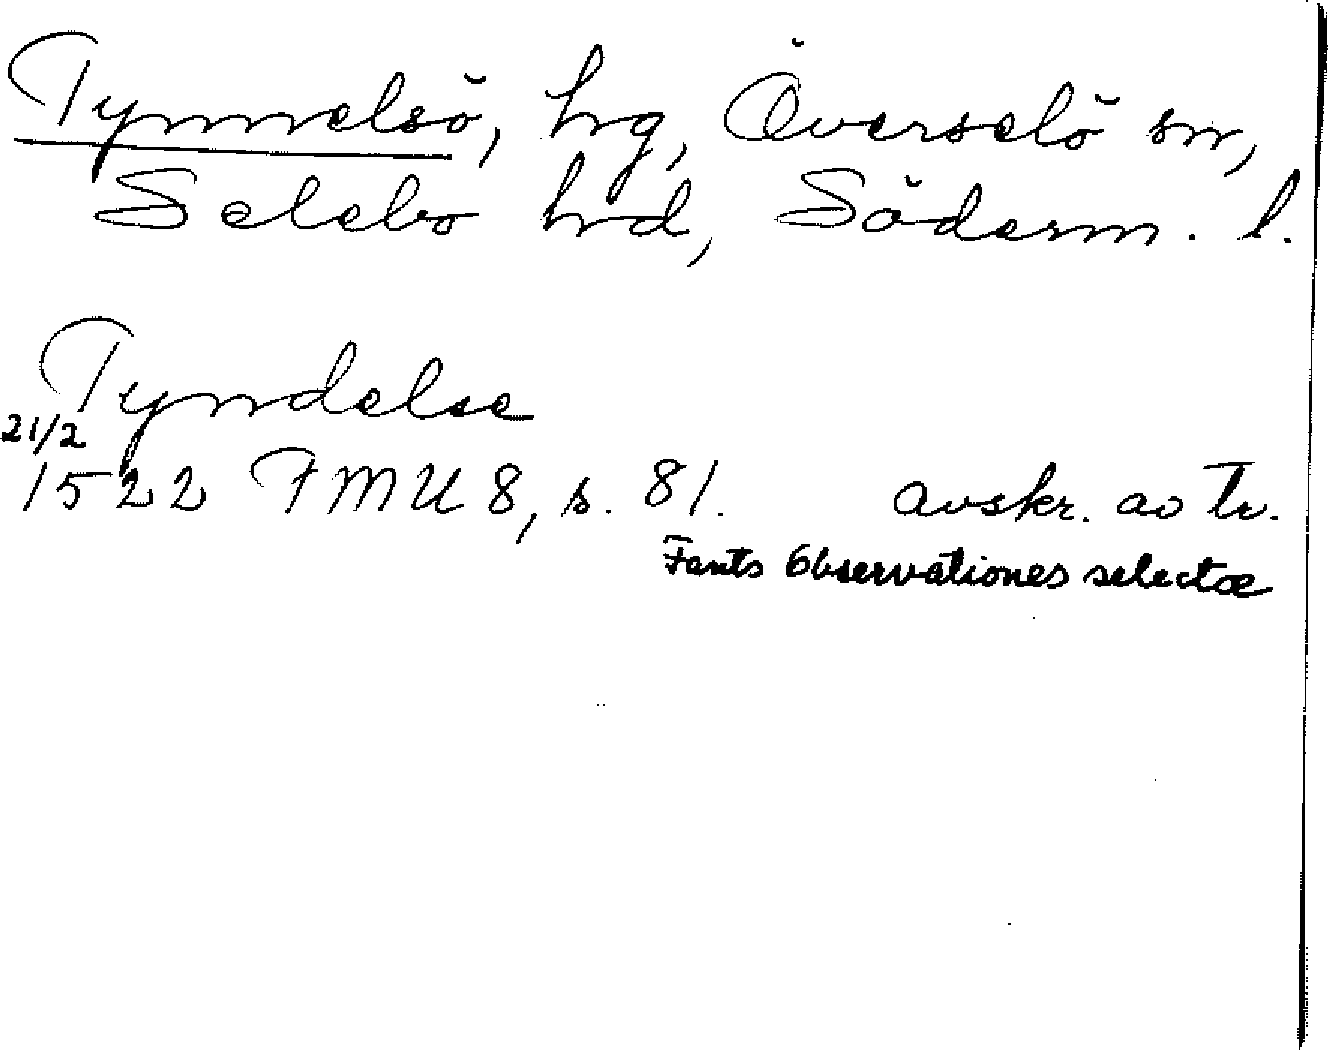 Tynnelsö, hrg, Överselö sn,
Selebo hrd, Söderm. l.
Tyndelse
21/2
1522 FMU 8, s. 81. avskr. av tr.
Fants Observationes selectæ